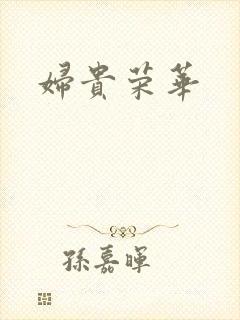 婦貴荣華
孫嘉暉